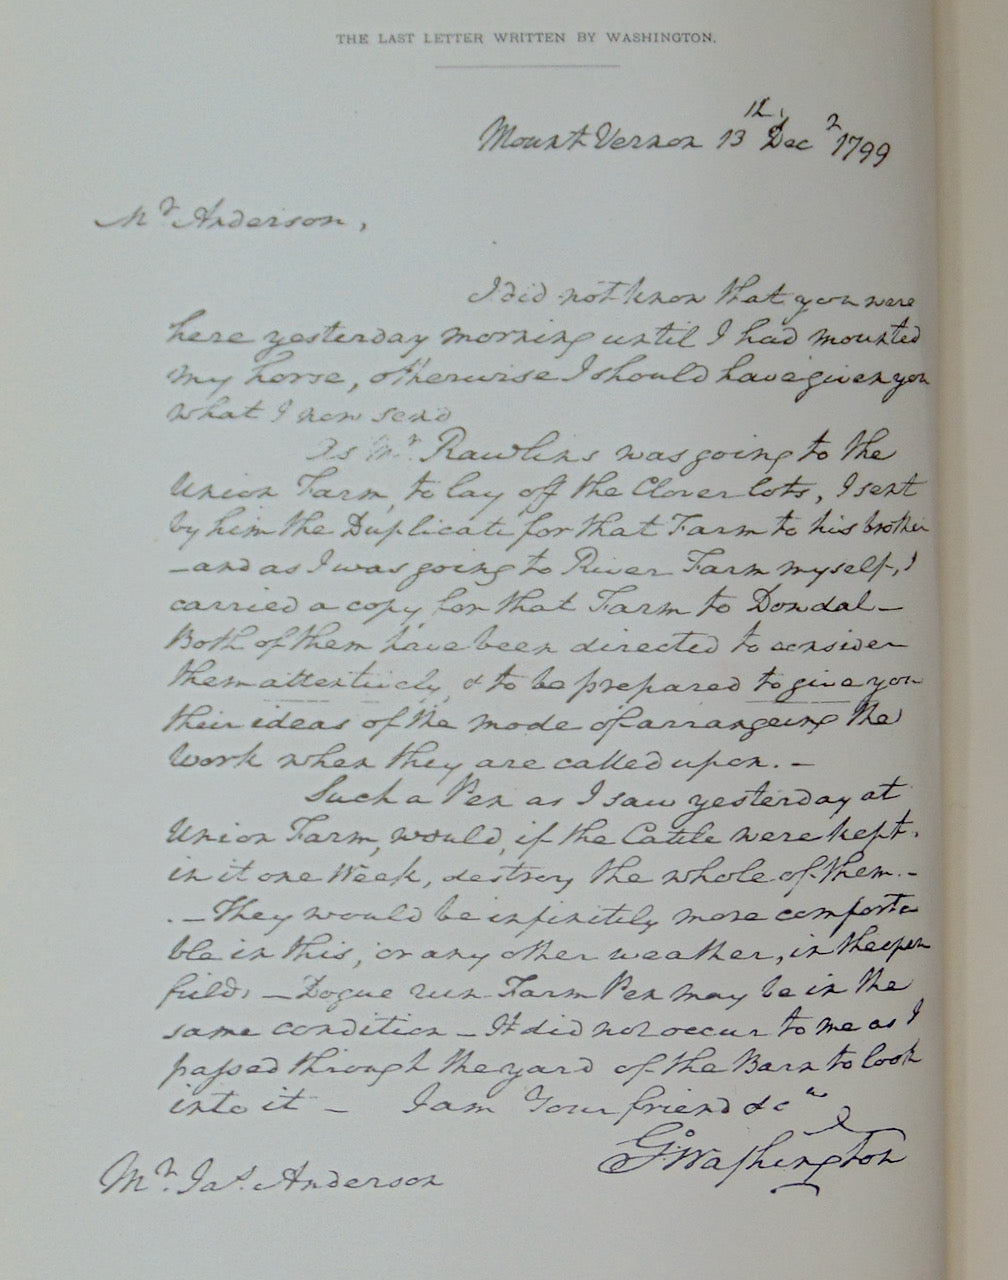 THE LAST LETTER WRITTEN BY WASHINGTON.
Mount Vernon 13th Decr 1799
Mr Anderson,
I did not know that you were
here yesterday morning until I had mounted
my horse, otherwise I should have given you
what I now send
As Mr Rawlins was going to the
Union Farm, to lay off the Clover lots, I sent
by him the Duplicate for that Farm to his brother
—and as I was going to River Farm myself, I
carried a copy for that Farm to Dowdal—
Both of them have been directed to consider
them attentively, & to be prepared to give you
their ideas of the mode of arrangeing the
work when they are called upon.—
Such a Pen as I saw yesterday at
Union Farm, would, if the Cattle were kept
in it one Week, destroy the whole of them.—
.—They would be infinitely more comforta
ble in this, or any other weather, in the open
field.—Dogue run Farm Pen may be in the
same condition—It did not occur to me as I
passed through the yard of the Barn to look
into it— I am Your friend &ca
Go: Washington
Mr. Jas. Anderson